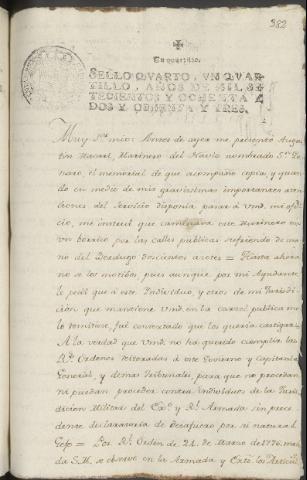 382
Un quartillo.
SELLO QVARTO, VN QVAR-
TILLO, AÑOS DE MIL SE-
TECIENTOS Y OCHENTA Y
DOS Y OCHENTA Y TRES.
Muy Sor. mio: Antes de ayer me presentó Augus-
tin Marinero del Navio nombrado Sn.
el memorial de que acompaño copia, y quan-
do en medio de mis gravisimas importantes aten-
ciones del Servicio disponia pasar á Vmd. mi ofi-
cio, me instruí que caminava este Marinero en
un borrico por las calles publicas recibiendo de ma-
no del Verdugo doscientos azotes = Hasta ahora
no se los motibos pues aunque por mi Ayudante
le pedi que á este Individuo, y otros de mi Jurisdi-
cion que mantiene Vmd. en la carcel publica me
lo remitiese, fué contextado que los queria castigar
A la verdad que Vmd. no ha querido cumplir las
Rs. Ordenes á este Govierno y Capitania
General, y demas Tribunales para que no procedan,
ni puedan proceder contra Individuos de la Juris-
dicion Militar del Exto. y Rl. Armada sin prece-
dente declaratoria de desafuero por si natural
= Por Rl. Orden de 21. de Marzo de 1776. man-
da S.M. se observe en la Armada y Exto. los